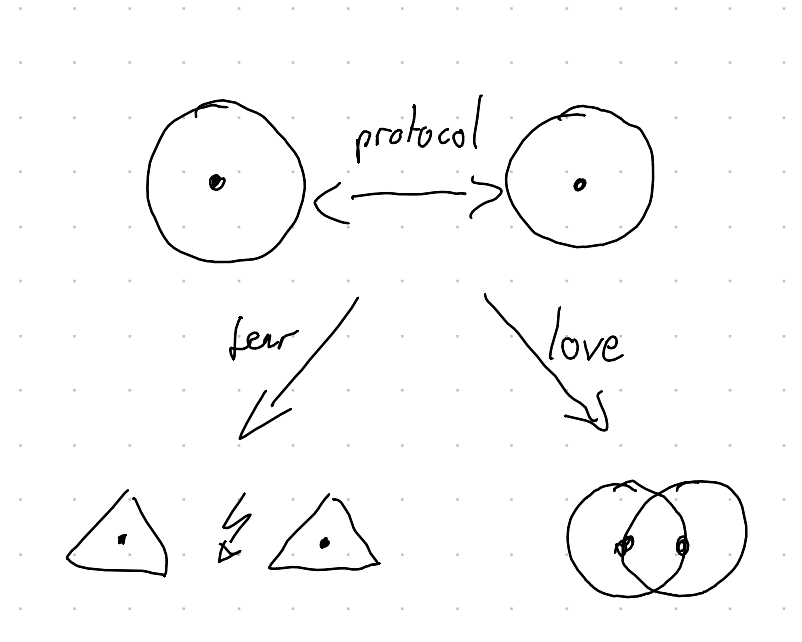 protocol
fear
love